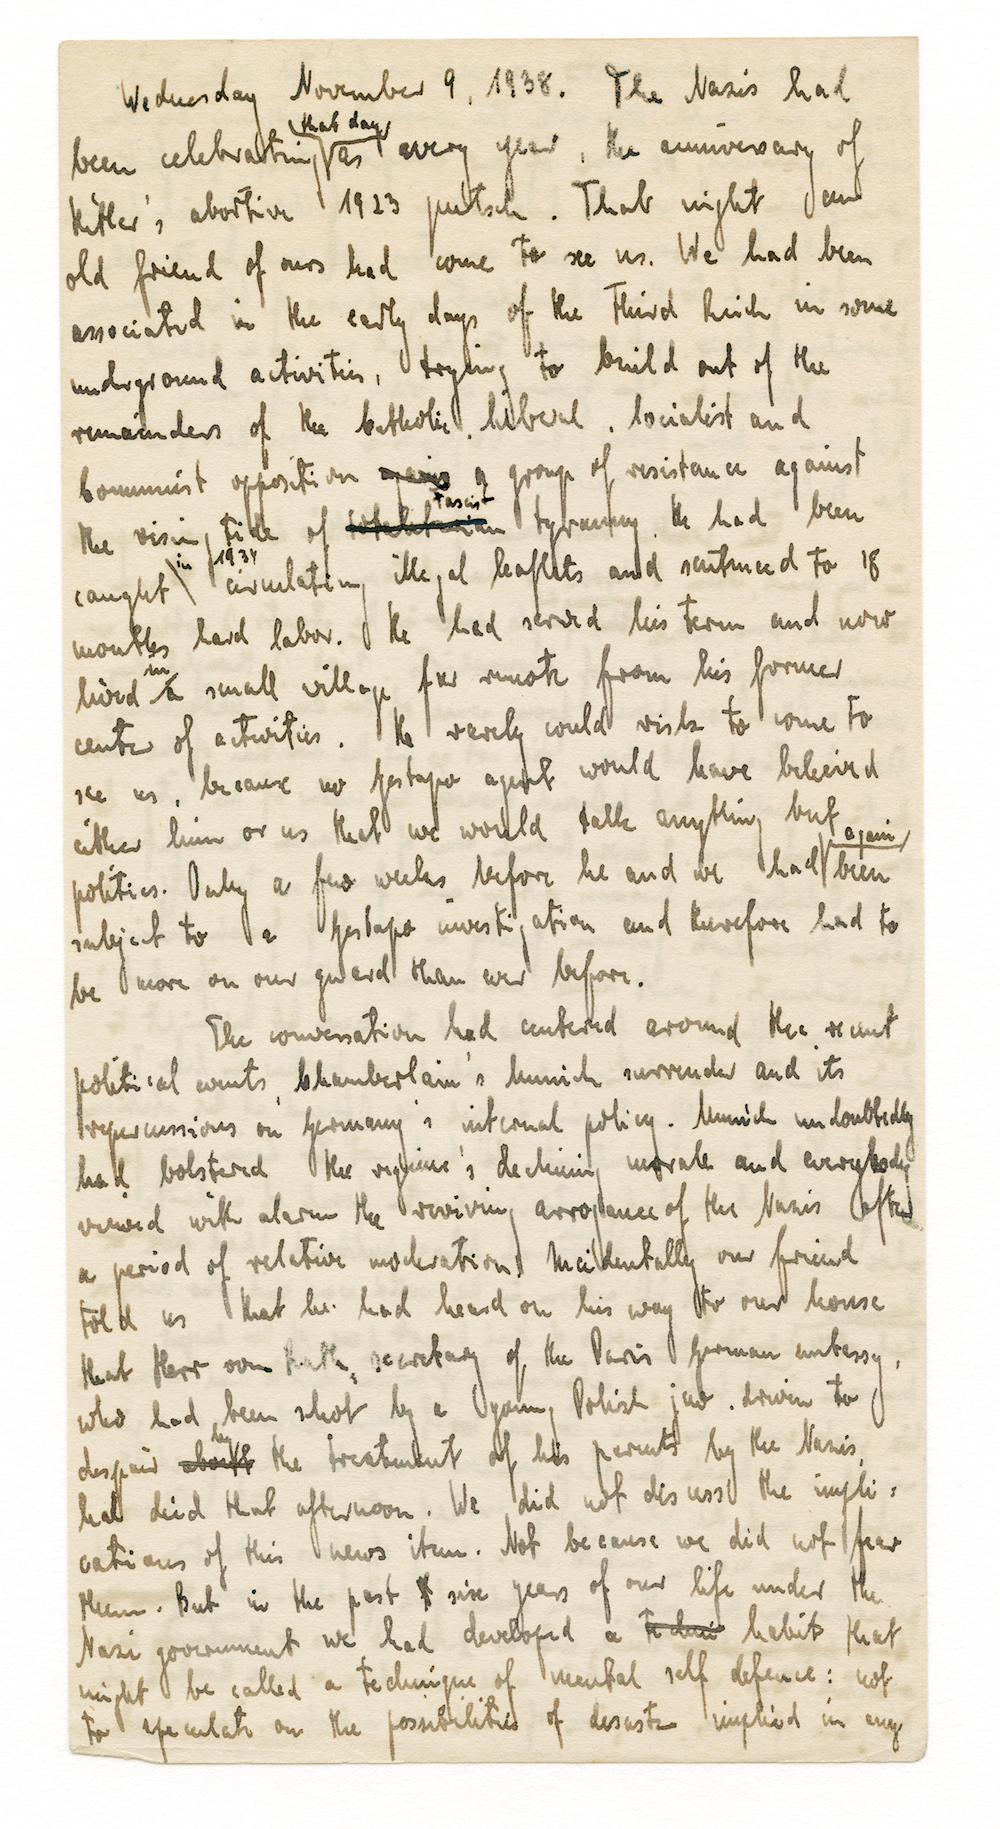 Wednesday November 9, 1938. The Nazis had
that day
been celebrating as every year, the anniversary of
Hitler's abortive 1923 putsch. That night an
old friend of ours had come to see us. We had been
associated in the early days of the Third Reich in some
underground activities, trying to build out of the
remainders of the Catholic, Liberal, Socialist and
Communist opposition a group of resistance against
fascist
the rising tide of totalitarian tyranny. He had been
in 1934
caught circulating illegal leaflets and sentenced to 18
months hard labor. He had served his term and now
in
lived a small village far remote from his former
center of activities. He rarely could risk to come to
see us, because no Gestapo agent would have believed
either him or us that we would talk anything but
again
politics. Only a few weeks before he and we had been
subject to a Gestapo investigation and therefore had to
be more on our guard than ever before.
The conversation had centered around the recent
political events, Chamberlain's Munich surrender and its
repercussions on Germany's internal policy. Munich undoubtedly
had bolstered the regime's declining morale and everybody
viewed with alarm the reviving arrogance of the Nazis after
a period of relative moderation. Incidentally our friend
told us that he had heard on his way to our house
that Herr vom Rath, secretary of the Paris German embassy,
who had been shot by a young Polish jew, driven to
by
despair about the treatment of his parents by the Nazis,
had died that afternoon. We did not discuss the impli=
cations of this news item. Not because we did not fear
them. But in the past six years of our life under the
Nazi government we had developed a techni habit that
might be called a technique of mental self defence: not
to speculate on the possibilities of disaster implied in any